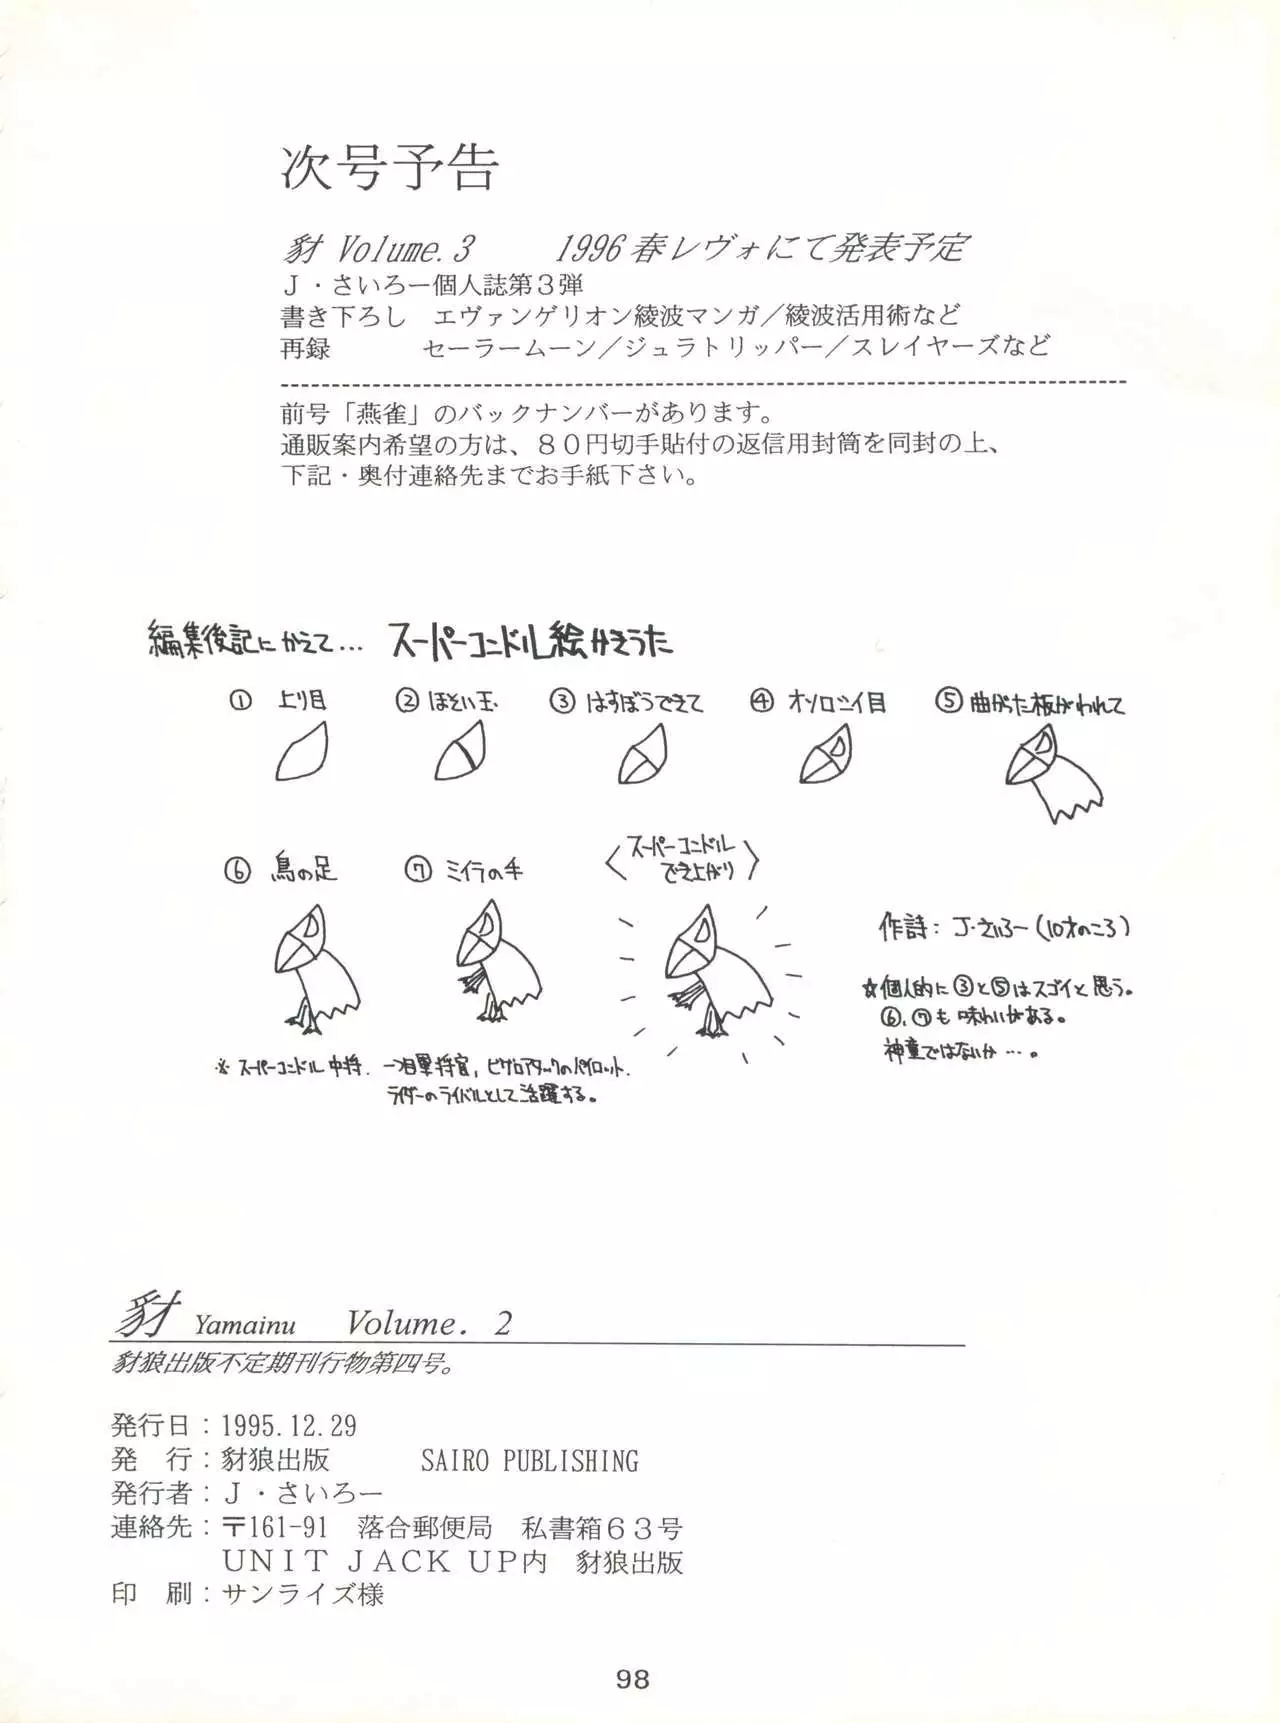 次号予告
豺 Volume.3　1996春レヴォにて発表予定
J・さいろー個人誌第3弾
書き下ろし　エヴァンゲリオン綾波マンガ／綾波活用術など
再録　セーラームーン／ジュラトリッパー／スレイヤーズなど
前号「燕雀」のバックナンバーがあります。
通販案内希望の方は、８０円切手貼付の返信用封筒を同封の上、
下記・奥付連絡先までお手紙下さい。
編集後記にかえて… スーパーコンドル絵かきうた
① 上り目 ② ほそい玉 ③ はすぼうできて ④ オソロシイ目 ⑤ 曲がた板がわれて
⑥ 鳥の足 ⑦ ミイラの手
スーパーコンドル
でき上がり
作詩：J・さいろー（10才のころ）
☆個人的に③と⑤はスゴイと思う。
⑥、⑦も味わいがある。
神童ではないか…。
※スーパーコンドル中将.
ライダーのライバルとして活躍する。
豺 Yamainu Volume. 2
豺狼出版不定期刊行物第四号。
発行日：1995.12.29
発　行：豺狼出版　SAIRO PUBLISHING
発行者：Ｊ・さいろー
連絡先：〒161-91　落合郵便局　私書箱６３号
ＵＮＩＴ ＪＡＣＫ ＵＰ内　豺狼出版
印　刷：サンライズ様
98